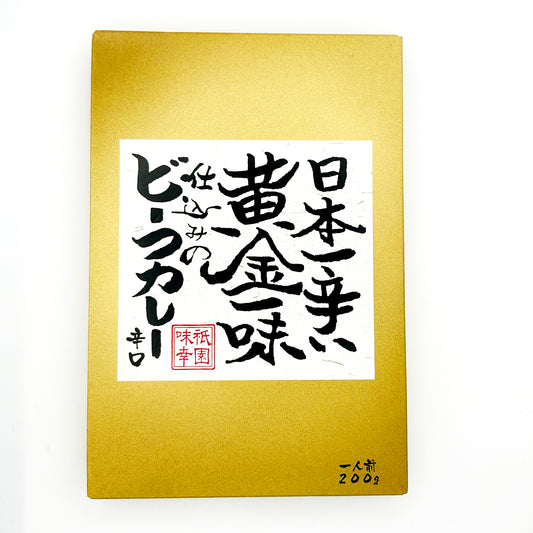 日本一辛い
黄金一味
仕込みの
ビーフカレー
辛口
祇園
味幸
一人前
200g